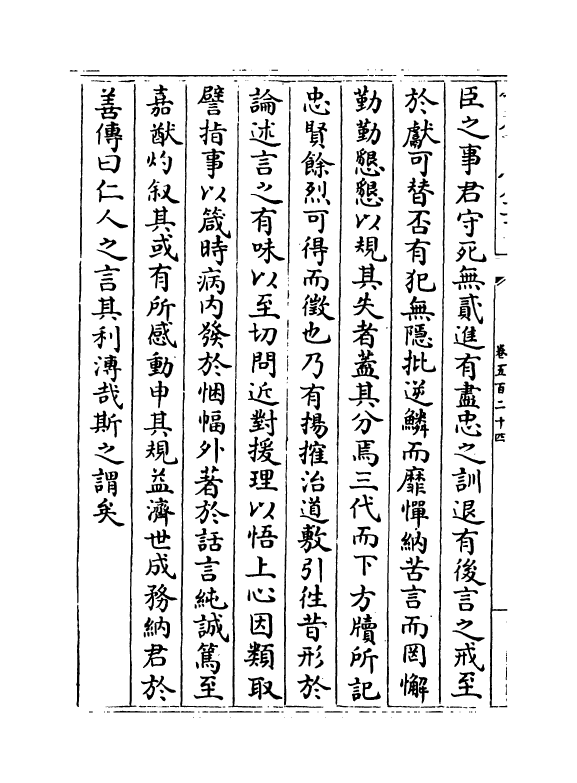 臣之事君守死無貳進有盡忠之訓退有後言之戒至
於獻可替否有犯無隠批逆鱗而靡憚納苦言而罔懈
勤勤懇懇以規其失者蓋其分焉三代而下方牘所記
忠賢餘烈可得而徵也乃有揚搉治道敷引徃昔形於
論述言之有味以至切問近對援理以悟上心因類取
譬指事以箴時病内發於悃愊外著於話言純誠篤至
嘉猷灼叙其或有所感動申其規益濟世成務納君於
善傳曰仁人之言其利溥哉斯之謂矣
卷五百二十四